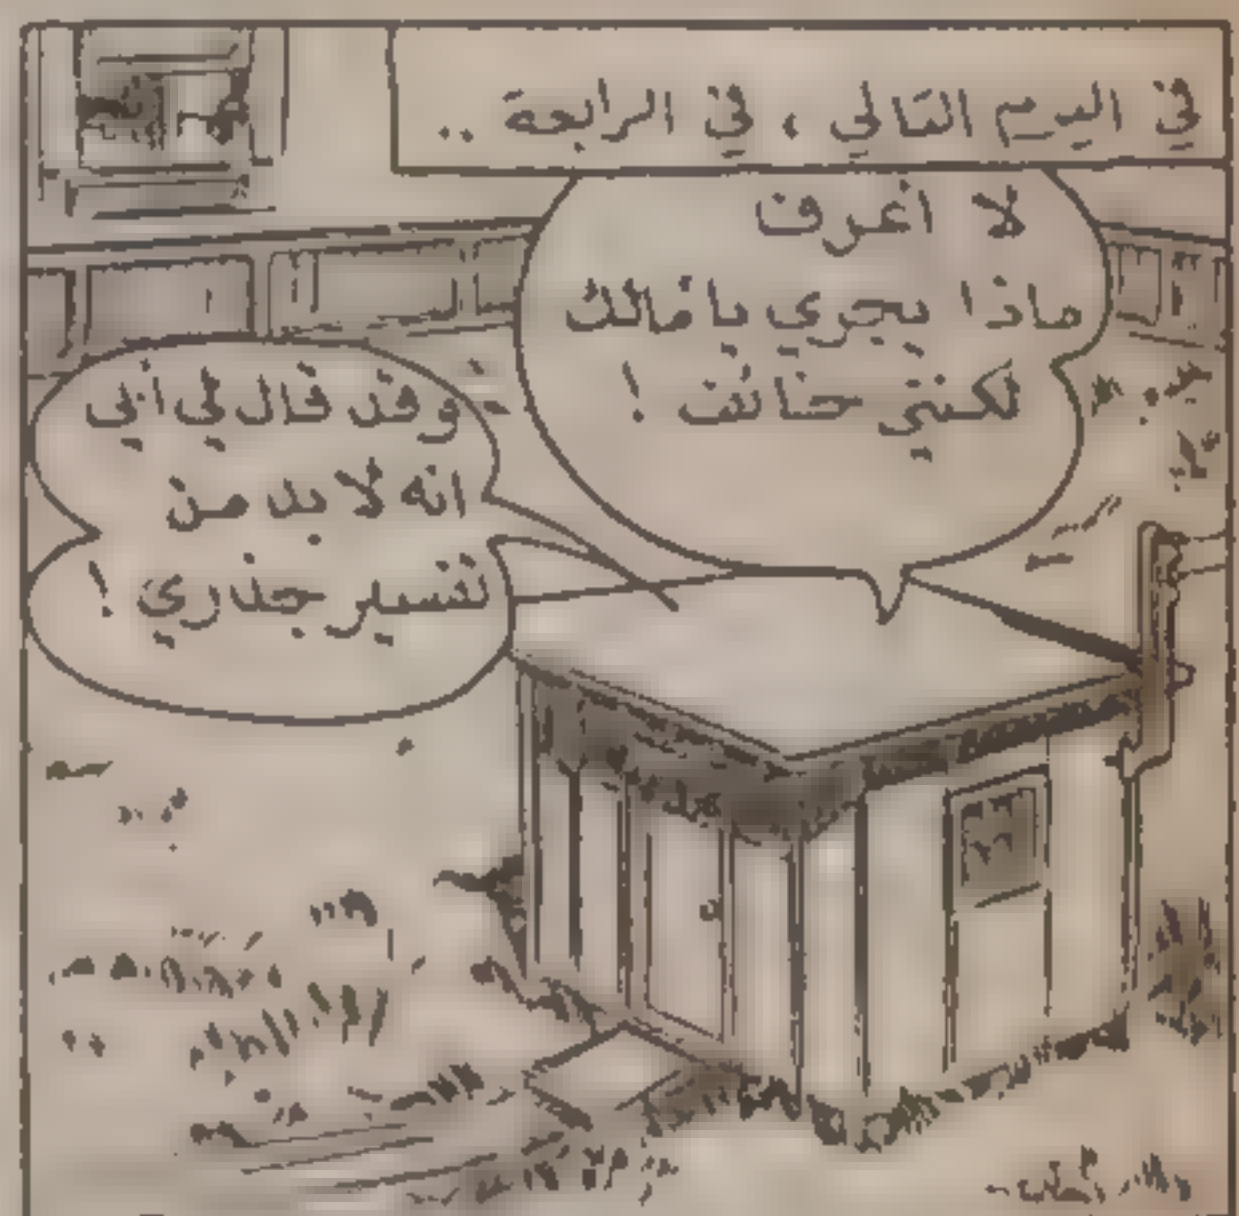 في اليوم التالي ، في الرابعة ..
لا أعرف
ماذا يجري يا مالك
لكنني خائف !
وقد قال لي أبي
انه لا بد من
تفسير جذري !